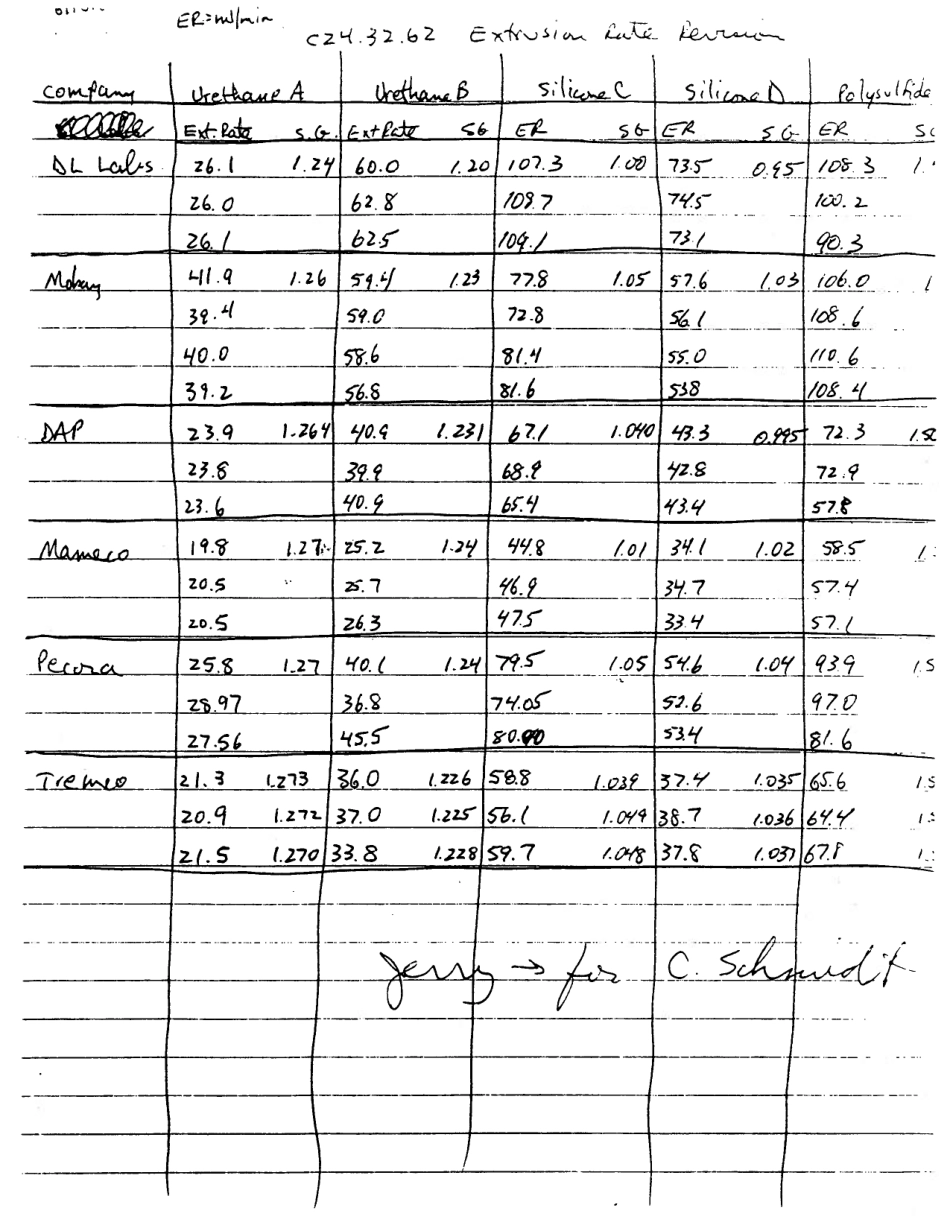 ER=ml/min
C24.32.62 Extrusion Rate Revision
Company Urethane A Urethane B Silicone C Silicone D Polysulfide
Ext. Rate S.G. Ext Rate SG ER SG ER S.G ER
DL Labs 26.1 1.24 60.0 1.20 107.3 1.00 73.5 0.95 108.3
26.0 62.8 108.7 74.5 100.2
26.1 62.5 109.1 73.1 90.3
Mobay 41.9 1.26 59.4 1.23 77.8 1.05 57.6 1.03 106.0
39.4 59.0 72.8 56.1 108.6
40.0 58.6 81.4 55.0 110.6
39.2 56.8 81.6 538 108.4
DAP 23.9 1.264 40.9 1.231 67.1 1.040 43.3 0.995 72.3
23.8 39.9 68.9 42.8 72.9
23.6 40.9 65.4 43.4 57.8
Mameco 19.8 1.27 25.2 1.24 44.8 1.01 34.1 1.02 58.5
20.5 25.7 46.9 34.7 57.4
20.5 26.3 47.5 33.4 57.1
Pecora 25.8 1.27 40.1 1.24 79.5 1.05 54.6 1.04 939
28.97 36.8 74.05 52.6 97.0
27.56 45.5 80.90 53.4 81.6
Tremco 21.3 1.273 36.0 1.226 58.8 1.039 37.4 1.035 65.6
20.9 1.272 37.0 1.225 56.1 1.049 38.7 1.036 64.4
21.5 1.270 33.8 1.228 59.7 1.048 37.8 1.037 67.8
Jerry → for C. Schmidt